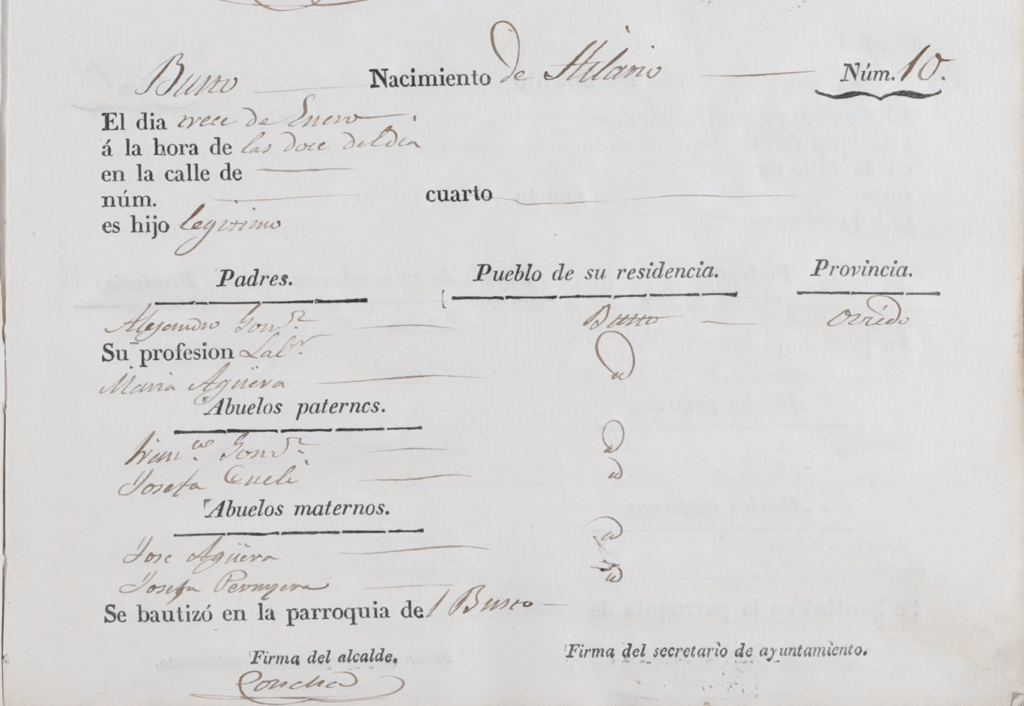 Busto Nacimiento de Hilario Núm. 10.
El dia trece de Enero
á la hora de las doce del dia
en la calle de
núm. cuarto
es hijo legitimo
Padres. Pueblo de su residencia. Provincia.
Alejandro Gonz. Busto Oviedo
Su profesion Labr.
Maria Agüera
Abuelos paternos.
Franco. Gonz.
Josefa Cueli
Abuelos maternos.
Jose Agüera
Josefa
Se bautizó en la parroquia del Busto
Firma del alcalde. Firma del secretario de ayuntamiento.
Concha